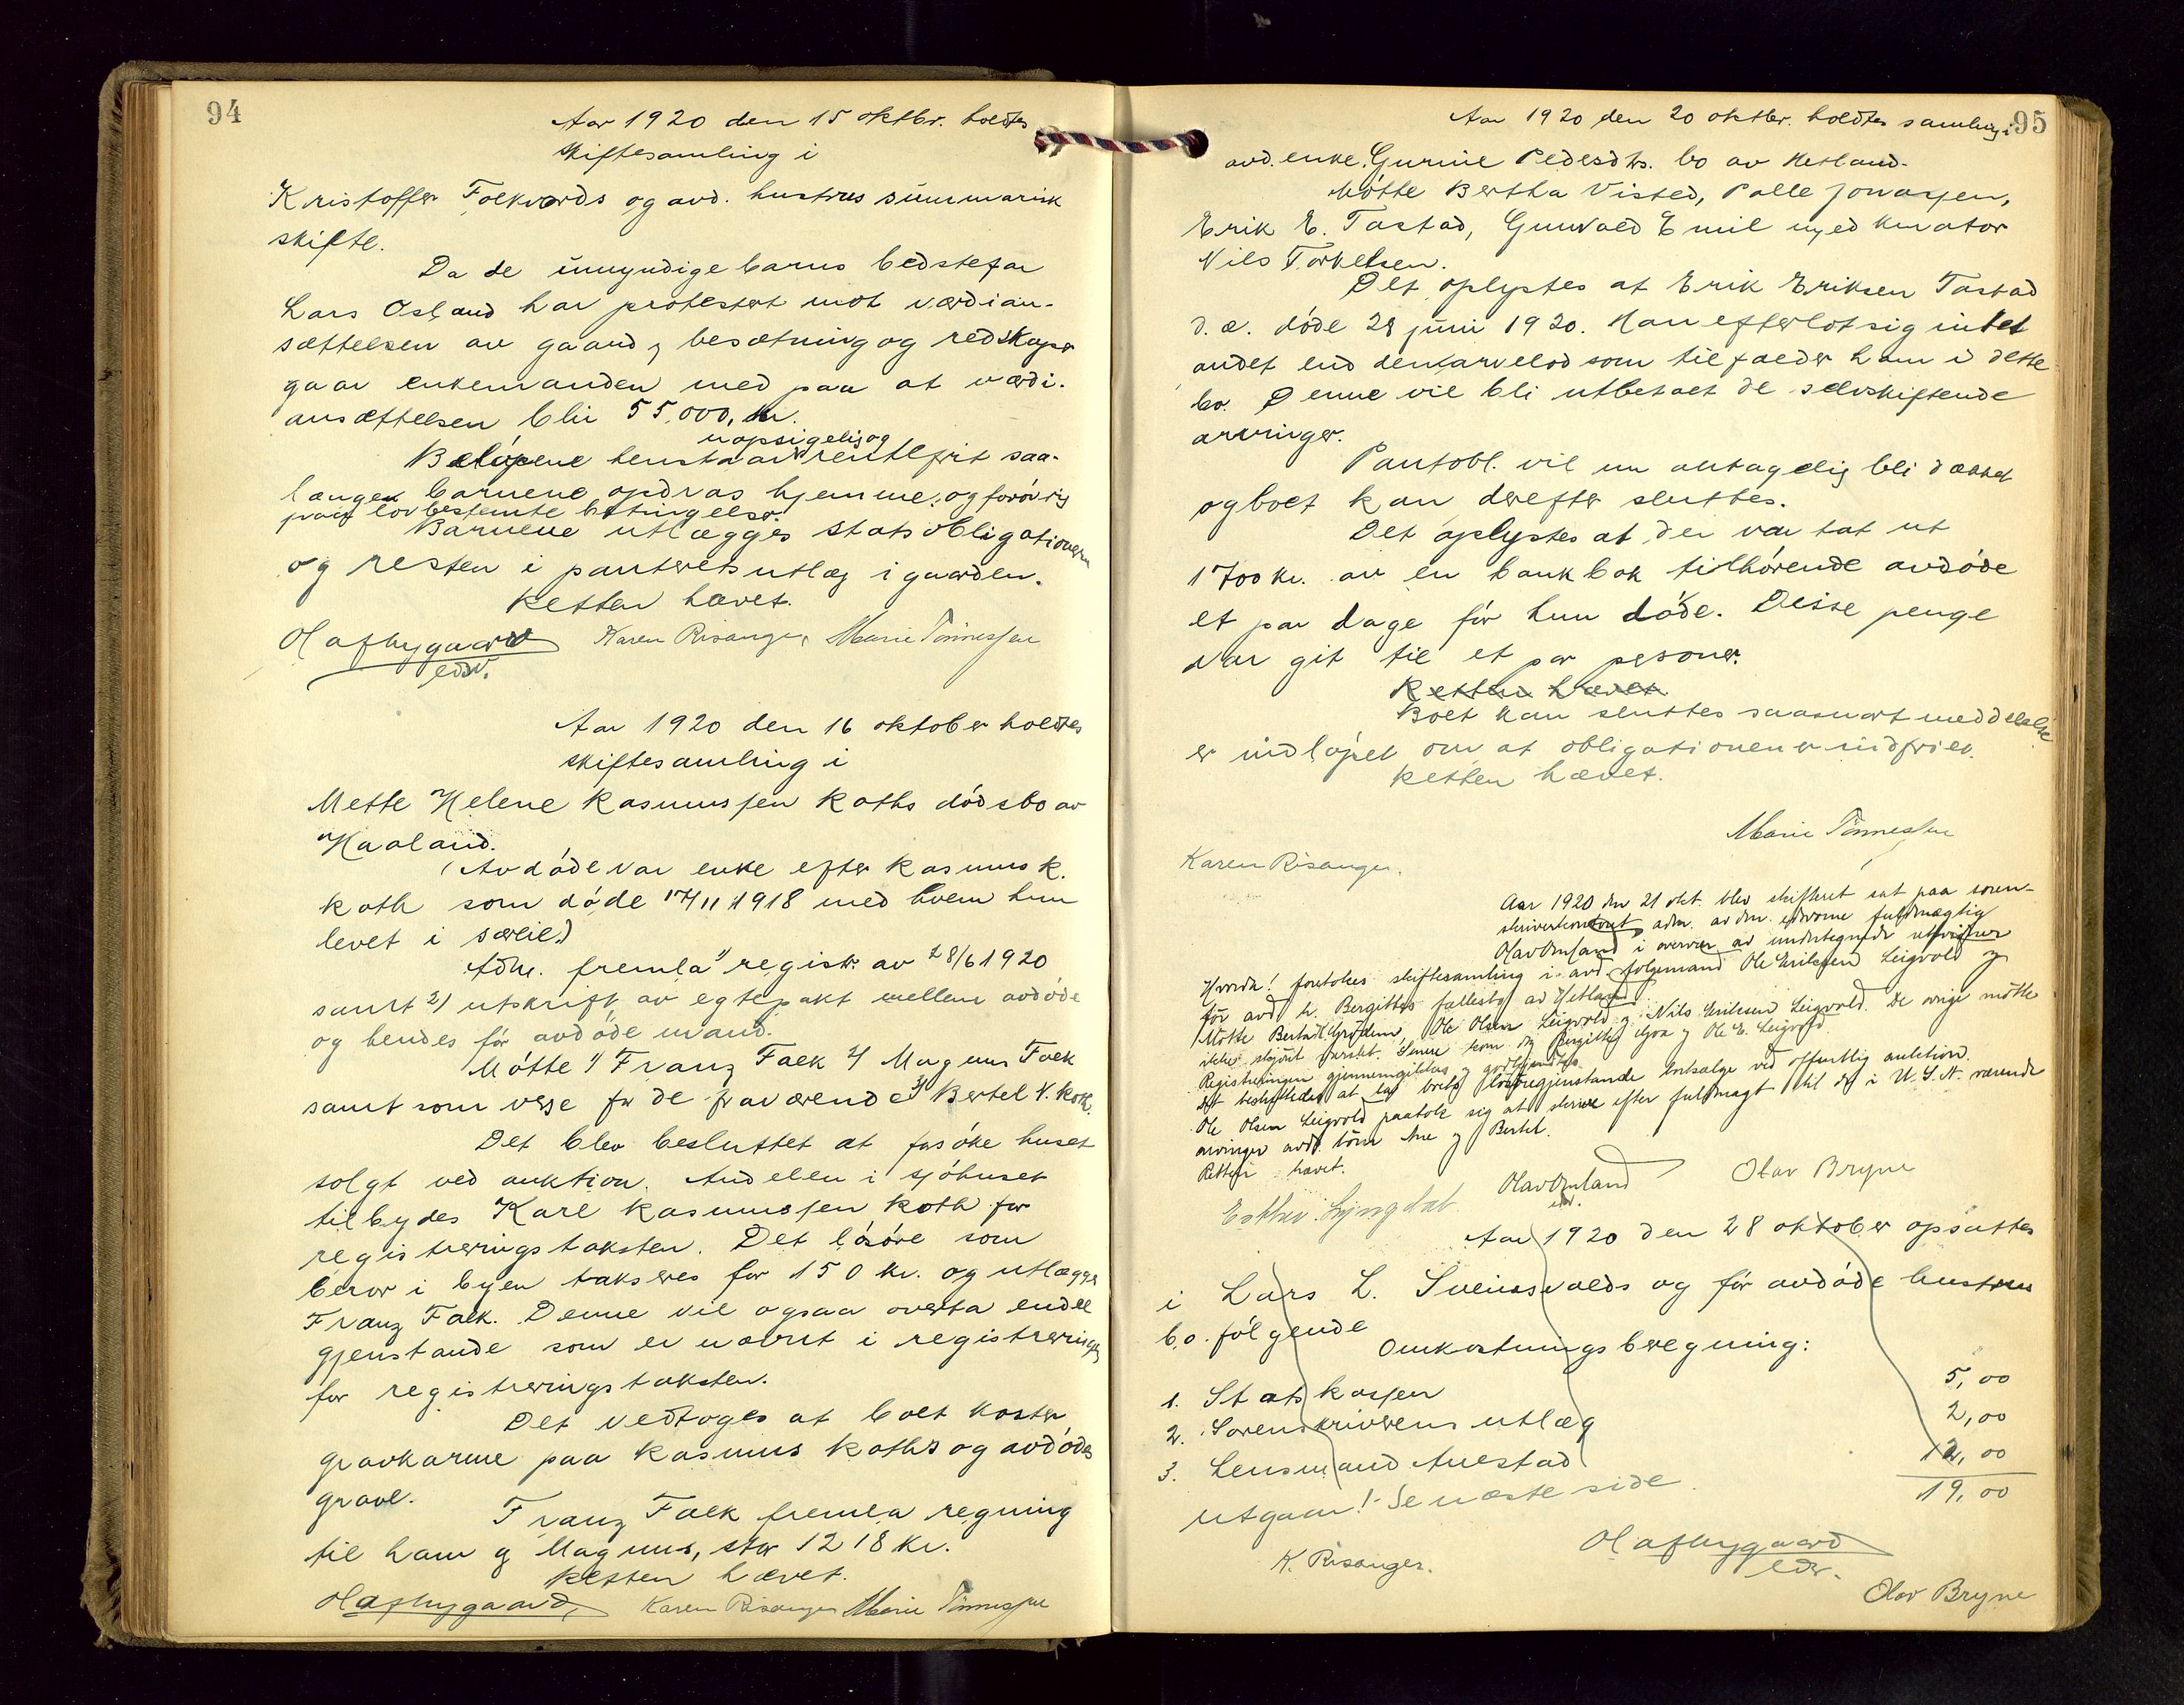 94
Aar 1920 den 15 oktbr. holdtes
skiftesamling i
Kristoffer Folkvords og avd. hustrus summarisk
skifte.
Da de umyndige barns bedstefar
Lars Osland har protestert mot værdian-
sættelsen av gaard, besætning og redskaper
gaar enkemanden med paa at værdi-
ansættelsen blir 55.000, kr.
uopsigelig og
Beløpene henstaar rentefrit saa-
længe barnene opdras hjemme, og forøvrig
paa lovbestemte betingelser.
Barnene utlægges statsobligationern
og resten i panteretsutlæg i gaarden.
Retten hævet.
Olaf Nygaard Karen Risanger, Marie Tønnessen
edsv.
Aar 1920 den 16 oktober holdtes
skiftesamling i
Mette Helene Rasmussen Roths dødsbo av
Haaland.
(Avdøde var enke efter Rasmus R.
Roth som døde 17/11 1918 med hvem hun
levet i særeie.)
Adm. fremla 1) registr. av 28/6 1920
samt 2) utskrift av egtepakt mellem avdøde
og hendes før avdøde mand.
Møtte 1) Franz Falk 2) Magnus Falk
samt som verge for de fraværende 3) Bertel N. Roth.
Det blev besluttet at forsøke huset
solgt ved auktion. Andelen i sjøhuset
tilbydes Karl Rasmussen Roth for
registreringstaksten. Det løsøre som
beror i byen takseres for 150 kr. og utlægges
Franz Falk. Denne vil ogsaa overta endel
gjenstande som er nævnt i registreringen
for registreringstaksten.
Det vedtoges at boet koster
gravkarme paa Rasmus Roths og avdødes
grave.
Franz Falk fremla regning
til ham og Magnus, stor 1218 kr.
Retten hævet.
Olaf Nygaard, Karen Risanger Marie Tønnessen
95
Aar 1920 den 20 oktbr. holdtes samling i
avd. enke Gurine Pedersdtrs. bo av Hetland.
Møtte Bertha Visted, Palle Jonassen,
Erik E. Tastad, Gunvald Emil med kurator
Nils Torkelsen.
Det oplystes at Erik Eriksen Tastad
d.æ. døde 28 juni 1920. Han efterlot sig intet
andet end den arvelod som tilfalder ham i dette
bo. Denne vil bli utbetalt de selvskiftende
arvinger.
Pantobl. vil nu antagelig bli dækket
og boet kan derefter sluttes.
Det oplystes at der var tat ut
1700 kr. av en bankbok tilhørende avdøde
et par dage før hun døde. Disse penge
var git til et par personer.
Retten hævet
Boet kan sluttes saasnart meddelelse
er indløpet om at obligationen er indfriet.
Retten hævet.
Marie Tønnessen
Karen Risanger.
Aar 1920 den 21 okt. blev skifteret sat paa soren-
skriverkontoret adm. av den edsvorne fuldmægtig
Olav Omland i overvær av undertegnede retsvidner
Hvorda! foretokes skiftesamling i avd. følgemand Ole Eriksen Leigvold og
før avd. h. Bergittes fællesbo av Hetland.
Møtte Ole Olsen Leigvold og Nils Eriksen Leigvold. De øvrige møtte
ikke skjønt varslet. Senere kom og Bergithe og Ole E. Leigvold
Registreringen gjennemgikkes og godkjendtes.
Det besluttedes at la boets løsøregjenstande bortsælge ved offentlig auktion.
Ole Olsen Leigvold paatok sig at skrive efter fuldmagt til de i U.S.A. værende
arvinger avd. børn Ane og Bertel.
Retten hævet.
Olav Omland Olav Bryne
edsv.
Esther Lyngdal
Aar 1920 den 28 oktober opsattes
i Lars L. Sveinsvolds og før avdøde hustrus
bo følgende
Omkostningsberegning:
1. Statskassen 5,00
2. Sorenskriverens utlæg 2,00
3. Lensmand Auestad 12,00
19,00
Utgaar! Se næste side.
K. Risanger. Olaf Nygaard
edsv.
Olav Bryne